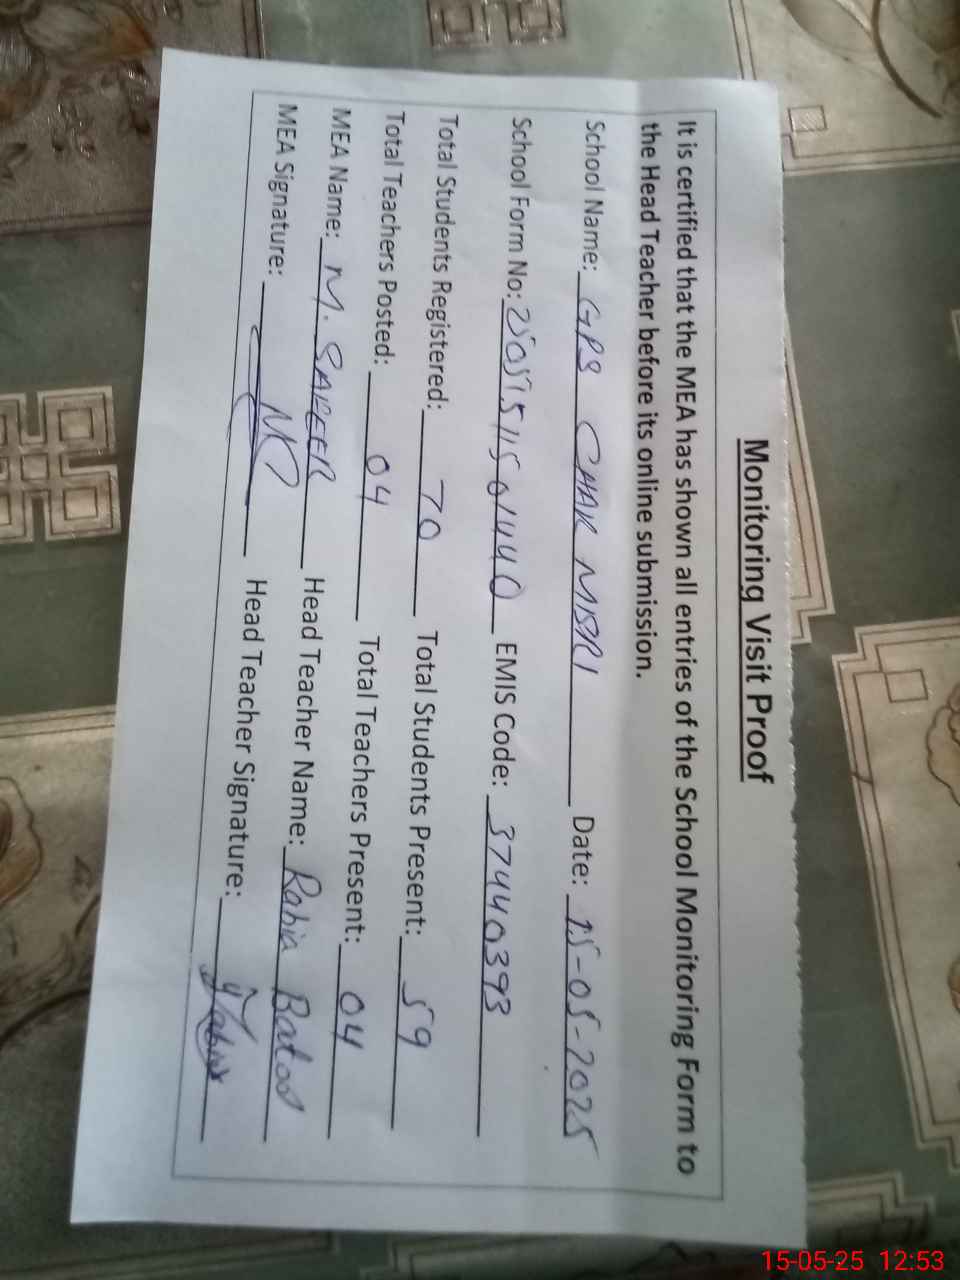 Monitoring Visit Proof
It is certified that the MEA has shown all entries of the School Monitoring Form to
the Head Teacher before its online submission.
School Name: GPS CHAK MISRI Date: 15-05-2025
School Form No: EMIS Code: 37440393
Total Students Registered: 70 Total Students Present: 59
Total Teachers Posted: 04 Total Teachers Present: 04
MEA Name: M. SAFEER Head Teacher Name: Rabia Batool
MEA Signature: Head Teacher Signature: Rabia
15-05-25 12:53